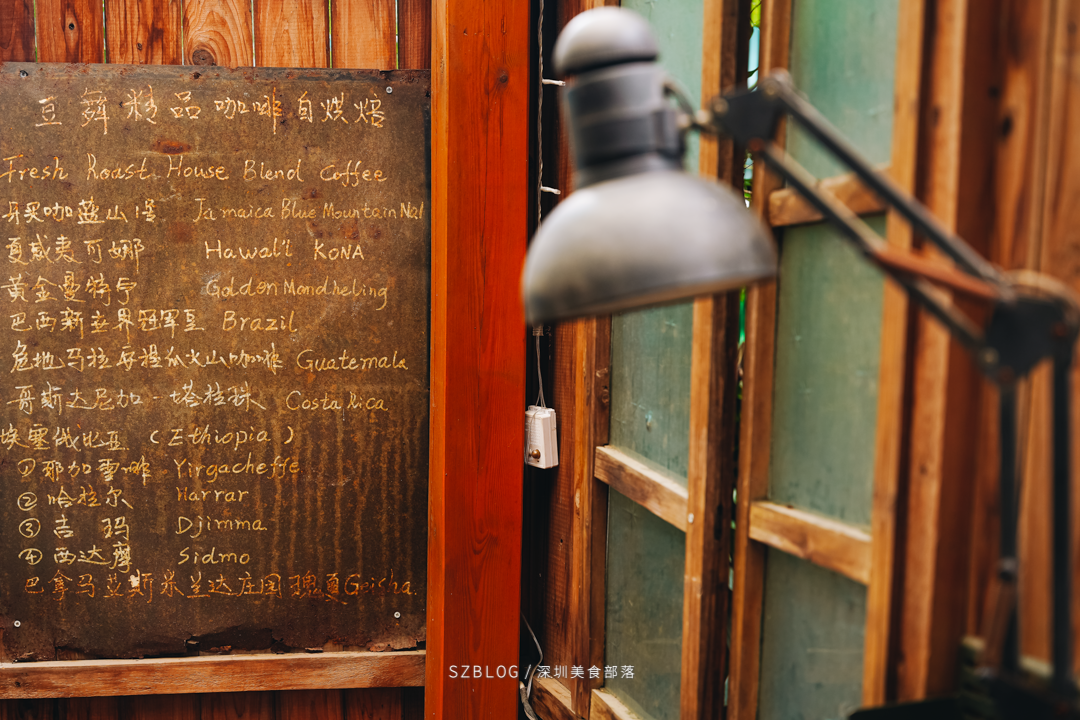 豆舞精品咖啡自烘焙
Fresh Roast House Blend Coffee
牙买咖蓝山 Jamaica Blue Mountain No1
夏威夷可娜 Hawai'i KONA
黄金曼特宁 Golden Mandheling
巴西新世界冠军豆 Brazil
危地马拉 火山咖啡 Guatemala
哥斯达尼加-塔拉珠 Costa Rica
埃塞俄比亚 (Ethiopia)
①耶加雪啡 Yirgacheffe
②哈拉尔 Harrar
③吉玛 Djimma
④西达摩 Sidmo
巴拿马 兰达庄园瑰夏Geisha
SZBLOG / 深圳美食部落